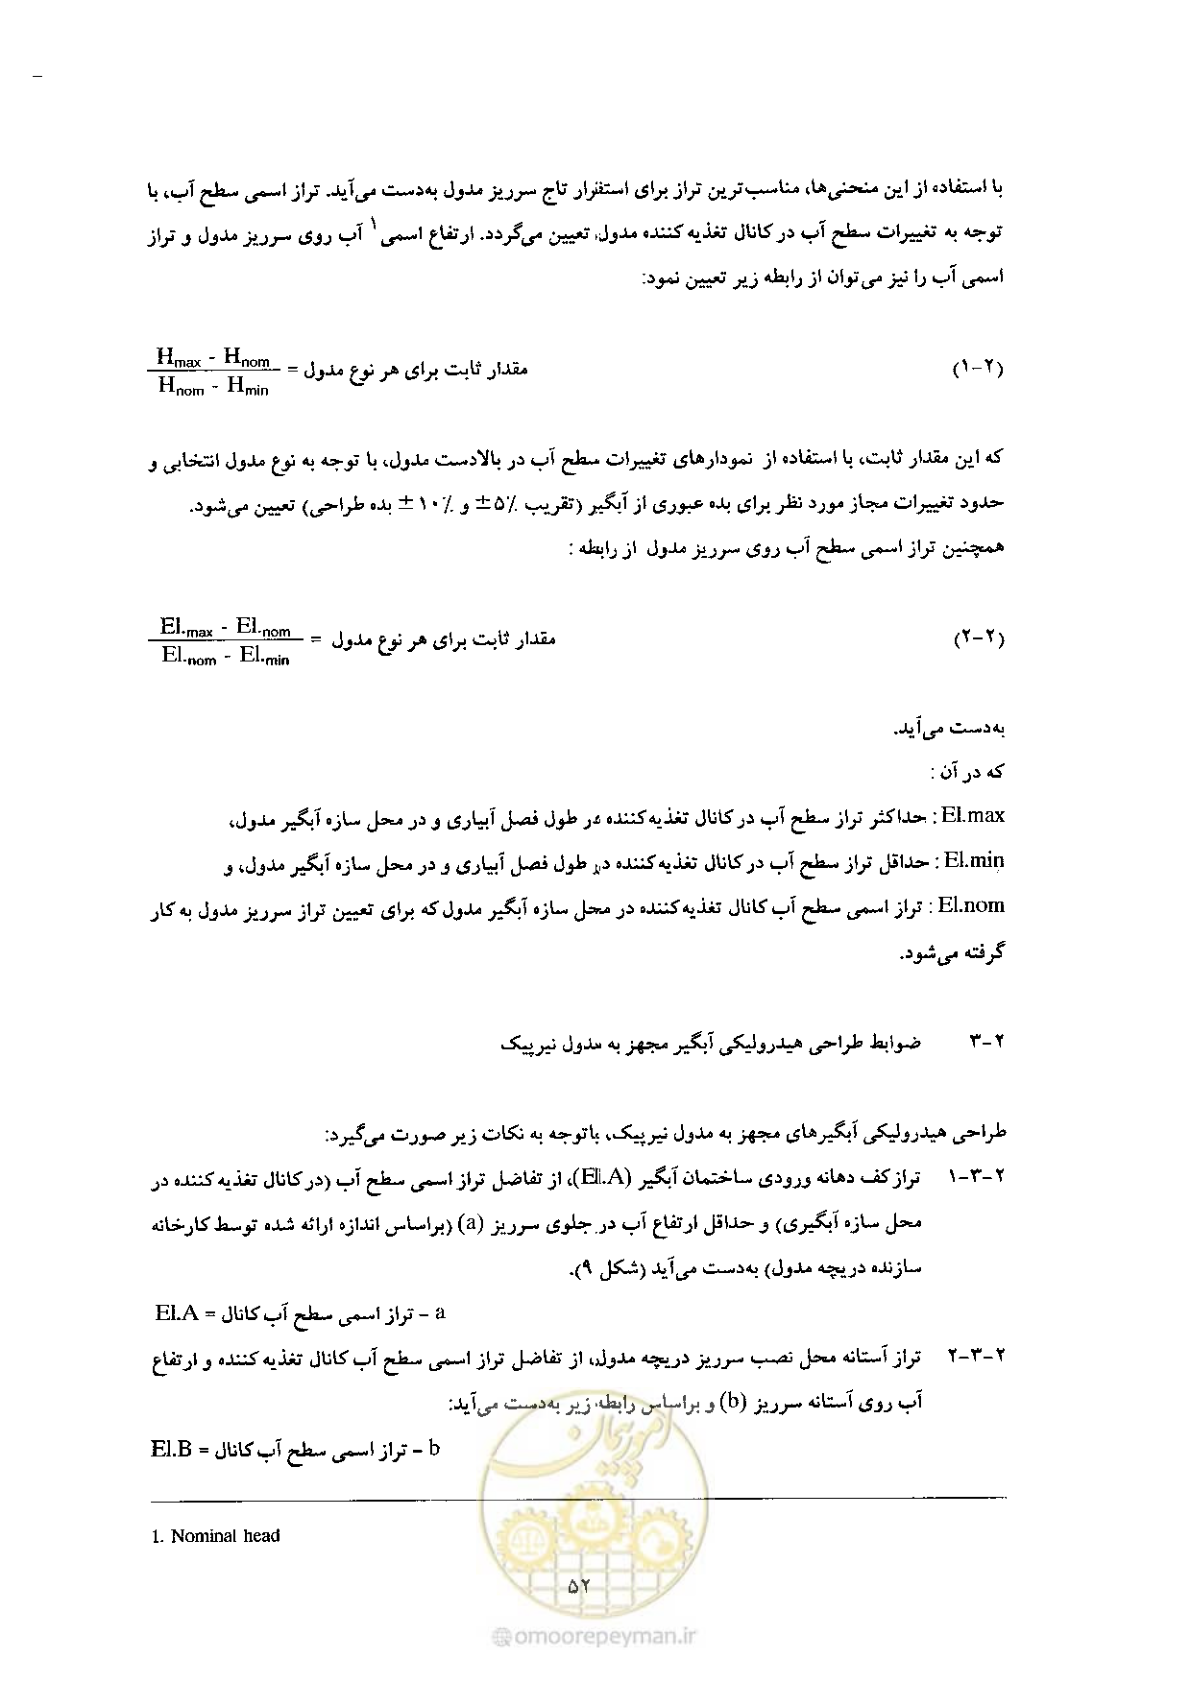 با استفاده از این منحنی‌ها، مناسب‌ترین تراز برای استقرار تاج سرریز مدول به‌دست می‌آید. تراز اسمی سطح آب، با
توجه به تغییرات سطح آب در کانال تغذیه کننده مدول، تعیین می‌گردد. ارتفاع اسمی۱ آب روی سرریز مدول و تراز
اسمی آب را نیز می‌توان از رابطه زیر تعیین نمود:
(۲-۱) مقدار ثابت برای هر نوع مدول = (Hmax - Hnom) / (Hnom - Hmin)
که این مقدار ثابت، با استفاده از نمودارهای تغییرات سطح آب در بالادست مدول، با توجه به نوع مدول انتخابی و
حدود تغییرات مجاز مورد نظر برای بده عبوری از آبگیر (تقریب ٪۵± و ٪۱۰± بده طراحی) تعیین می‌شود.
همچنین تراز اسمی سطح آب روی سرریز مدول از رابطه :
(۲-۲) مقدار ثابت برای هر نوع مدول = (El.max - El.nom) / (El.nom - El.min)
به‌دست می‌آید.
که در آن :
El.max : حداکثر تراز سطح آب در کانال تغذیه‌کننده در طول فصل آبیاری و در محل سازه آبگیر مدول،
El.min : حداقل تراز سطح آب در کانال تغذیه‌کننده در طول فصل آبیاری و در محل سازه آبگیر مدول، و
El.nom : تراز اسمی سطح آب کانال تغذیه‌کننده در محل سازه آبگیر مدول که برای تعیین تراز سرریز مدول به کار
گرفته می‌شود.
۲-۳ ضوابط طراحی هیدرولیکی آبگیر مجهز به مدول نیرپیک
طراحی هیدرولیکی آبگیرهای مجهز به مدول نیرپیک، باتوجه به نکات زیر صورت می‌گیرد:
۲-۳-۱ تراز کف دهانه ورودی ساختمان آبگیر (El.A)، از تفاضل تراز اسمی سطح آب (در کانال تغذیه کننده در
محل سازه آبگیری) و حداقل ارتفاع آب در جلوی سرریز (a) (براساس اندازه ارائه شده توسط کارخانه
سازنده دریچه مدول) به‌دست می‌آید (شکل ۹).
El.A = تراز اسمی سطح آب کانال – a
۲-۳-۲ تراز آستانه محل نصب سرریز دریچه مدول، از تفاضل تراز اسمی سطح آب کانال تغذیه کننده و ارتفاع
آب روی آستانه سرریز (b) و براساس رابطه زیر به‌دست می‌آید:
El.B = تراز اسمی سطح آب کانال – b
1. Nominal head
امور پیمان
۵۲
@omoorepeyman.ir